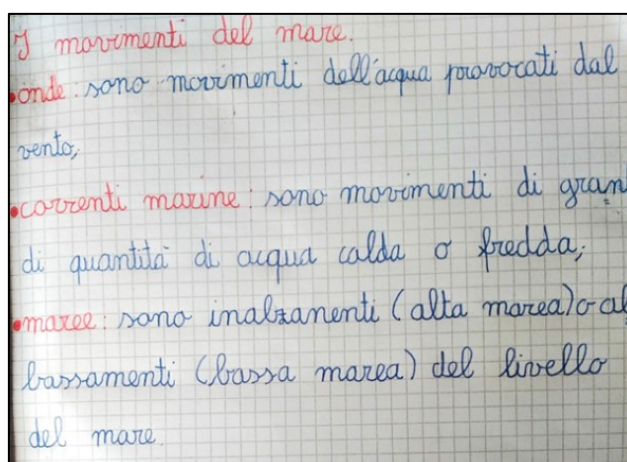 I movimenti del mare.
•onde: sono movimenti dell'acqua provocati dal
vento,
•correnti marine: sono movimenti di gran
di quantità di acqua calda o fredda;
•maree: sono inalzanenti (alta marea) o al
bassamenti (bassa marea) del livello
del mare.